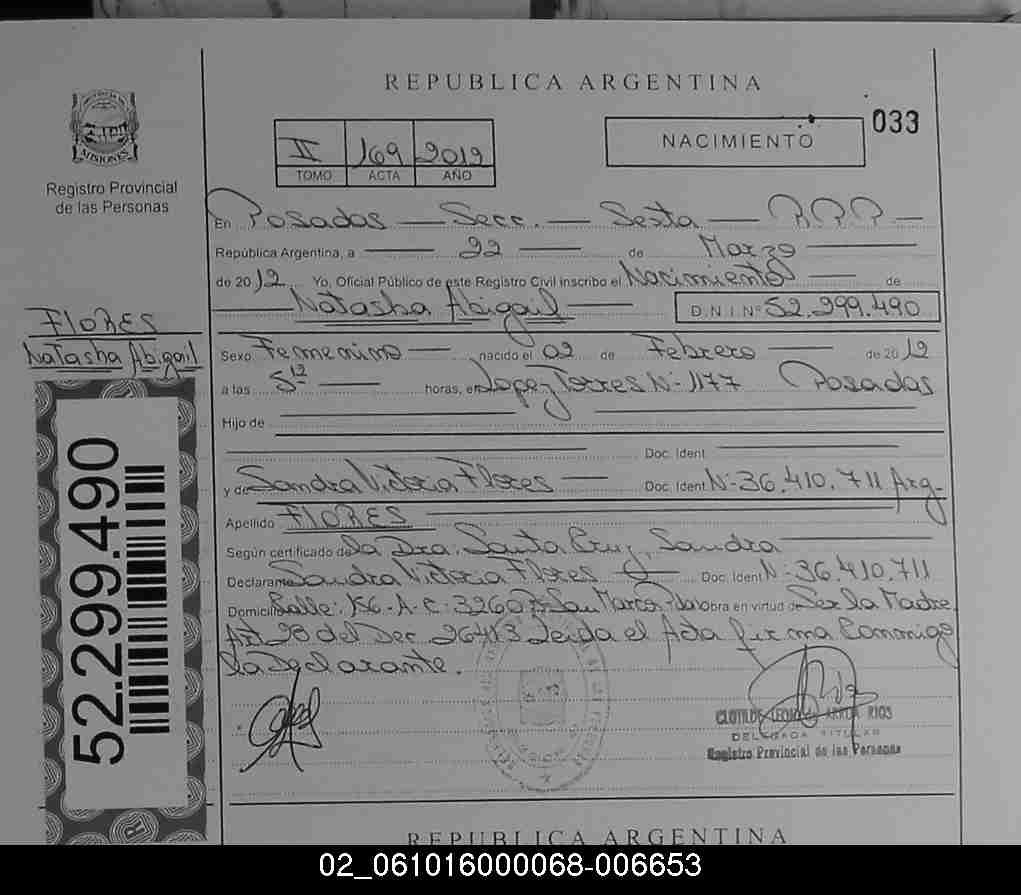 REPUBLICA ARGENTINA
033
MISIONES
Registro Provincial
de las Personas
II 169 2012
TOMO ACTA AÑO
NACIMIENTO
En Posadas — Secc. — Sexta — R P P —
República Argentina, a — 22 — de Marzo —
de 2012 Yo, Oficial Público de este Registro Civil inscribo el Nacimiento — de
— Natasha Abigail — D.N.I Nº 52.299.490
FLORES
Natasha Abigail
Sexo Femenino — nacido el 02 de Febrero — de 2012
a las 5 12 — horas, en Lopez Torres N- 1177 Posadas
Hijo de
Doc. Ident
y de Sandra Victoria Flores — Doc. Ident N- 36.410.711 Arg-
Apellido FLORES
Según certificado de la Dra. Santa Cruz, Sandra
Declarante Sandra Victoria Flores — Doc. Ident N- 36.410.711
Domicilio Calle: 156-A-C: 3260 San Marcos Obra en virtud de Ser la Madre
Art. 28 del Dec. Leida el Acta firma Conmigo
la Declarante.
52.299.490
RIOS
DELEGADA TITULAR
Registro Provincial de las Personas
REPUBLICA ARGENTINA
02_061016000068-006653